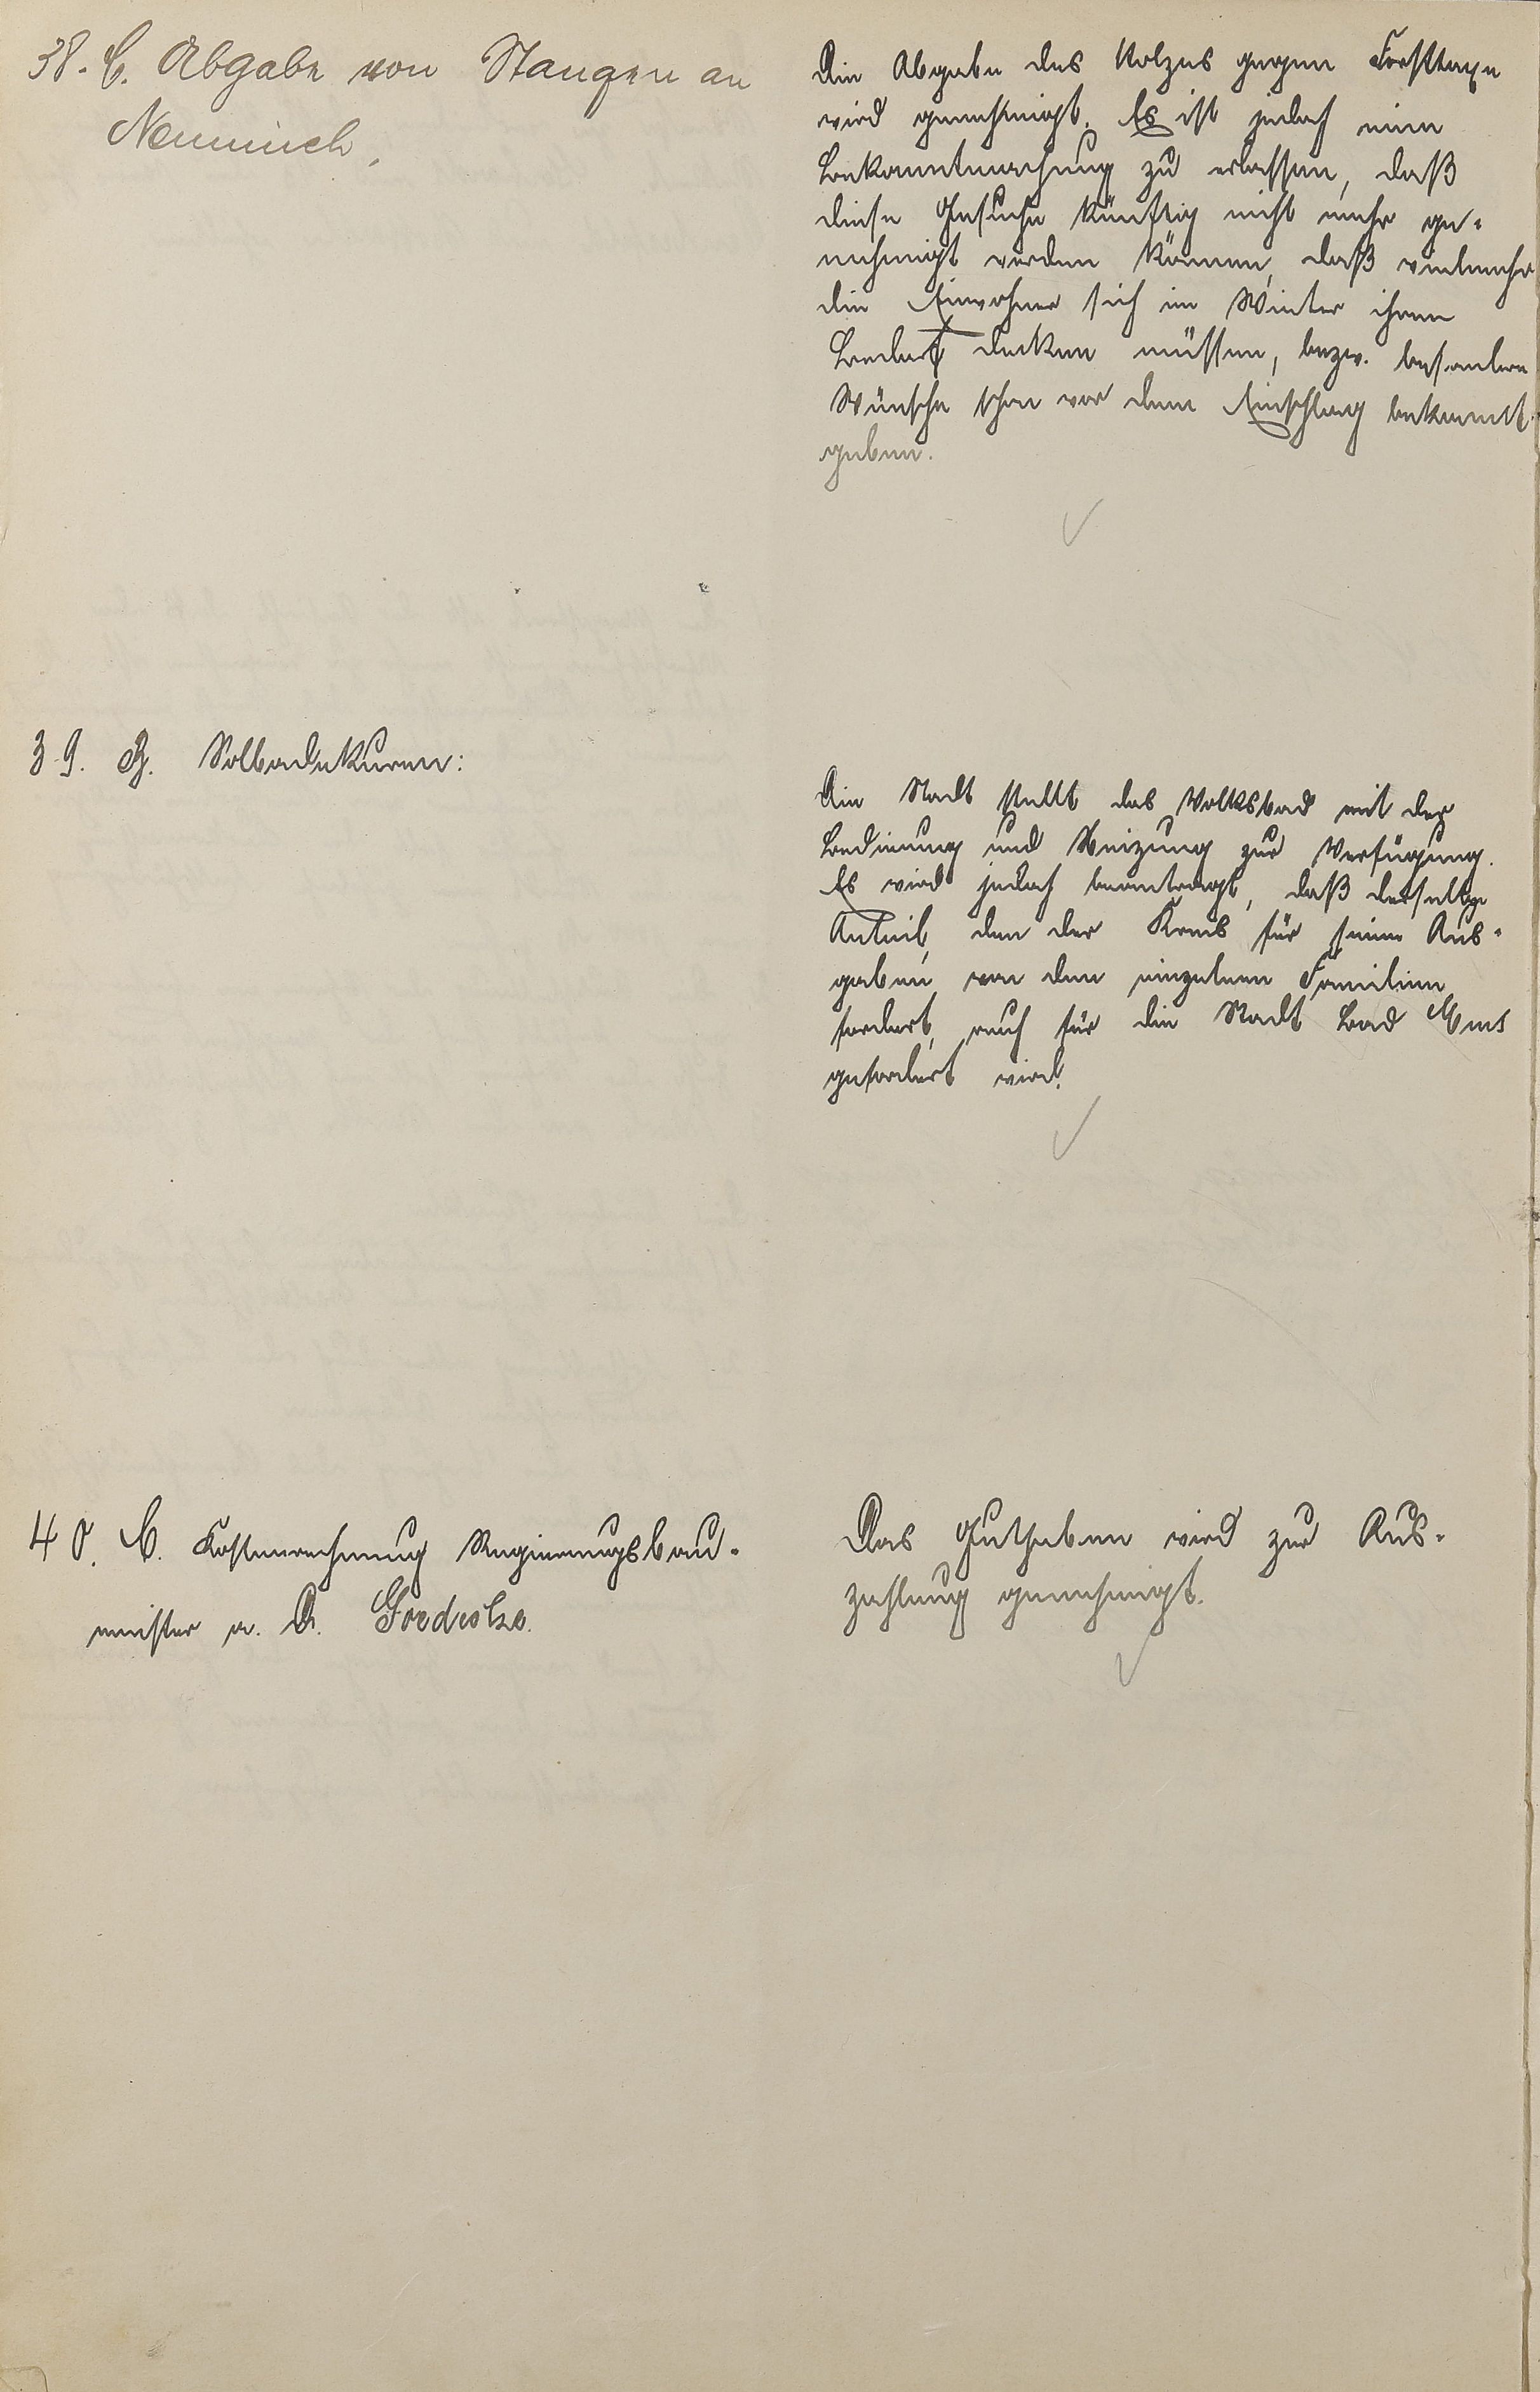 38. C. Abgabe von Stangen an
Nemnich,
Die Abgabe des Holzes gegen Forsttaxe
wird genehmigt. Es ist jedoch eine
Bekanntmachung zu erlassen, daß
diese Gesuche künftig nicht mehr ge-
nehmigt werden können, daß vielmehr
die Einwohner sich im Winter ihren
Bedarf decken müssen, bezw. besondere
Wünsche schon vor dem Einschlag bekannt
geben.
39. B. Solbadekuren:
Die Stadt stellt das Volksbad mit der
Bedienung und Heizung zur Verfügung.
Es wird jedoch beantragt, daß derselbe
Anteil, den der Kreis für seine Aus-
gaben von den einzelnen Familien
fordert, auch für die Stadt Bad Ems
gefordert wird.
40. C. Kostenrechnung Regierungsbau-
meister a. D.
Das Guthaben wird zur Aus-
zahlung genehmigt.